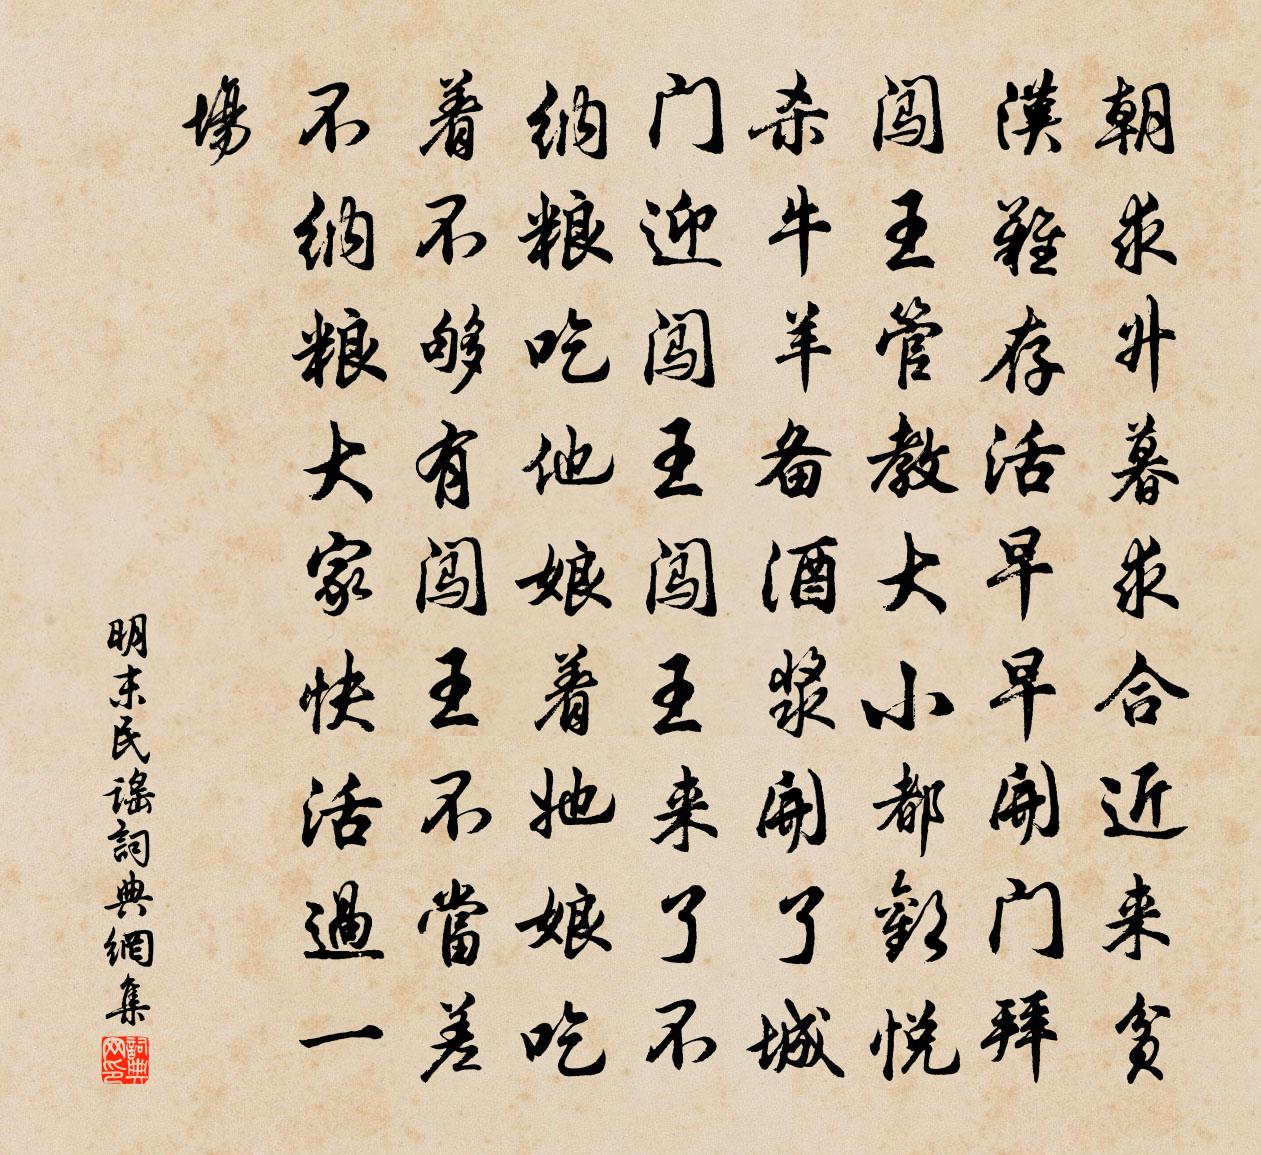 朝求升暮求合近来贫
漢難存活早早開门拜
闯王管教大小都歡悦
杀牛羊备酒漿開了城
门迎闯王闯王来了不
纳粮吃他娘着她娘吃
着不够有闯王不當差
不纳粮大家快活過一
場
明末民谣詞典網集
詞典网印